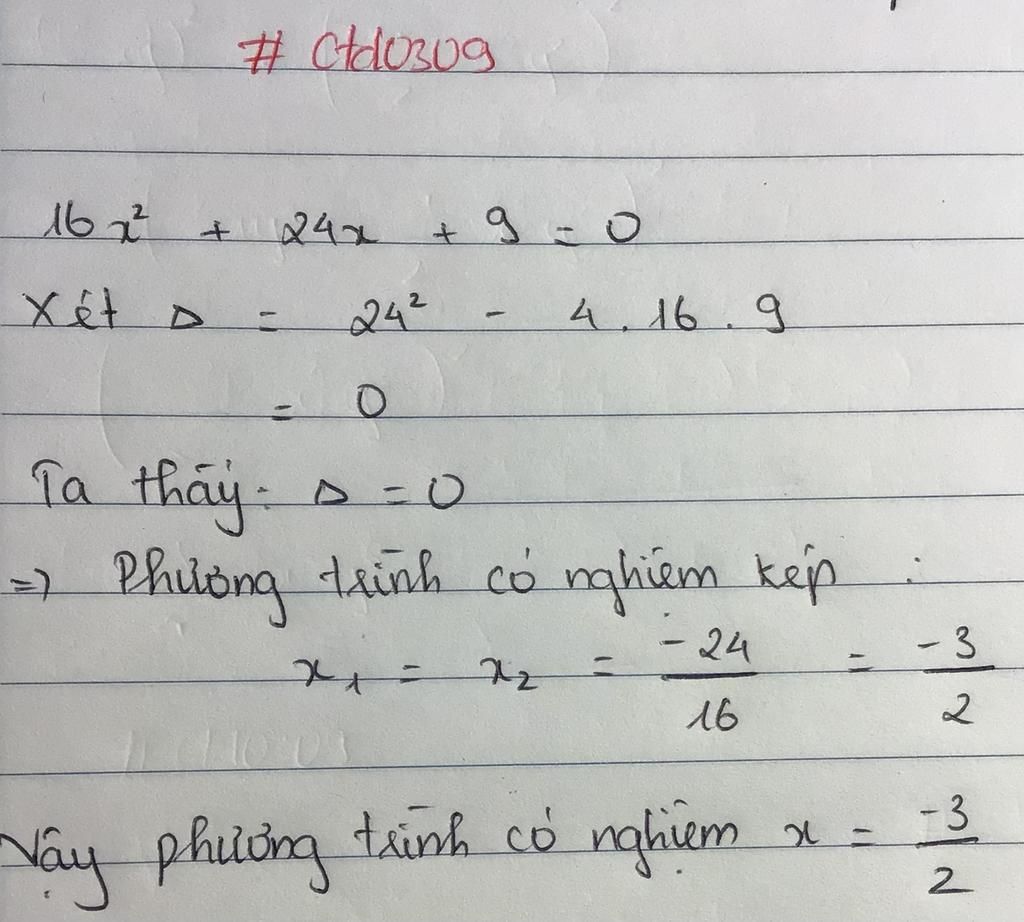 # Ctd0309
16x² + 24x + 9 = 0
Xét Δ = 24² - 4 . 16 . 9
= 0
Ta thấy: Δ = 0
=> Phương trình có nghiệm kép :
x₁ = x₂ = -24/16 = -3/2
Vậy phương trình có nghiệm x = -3/2